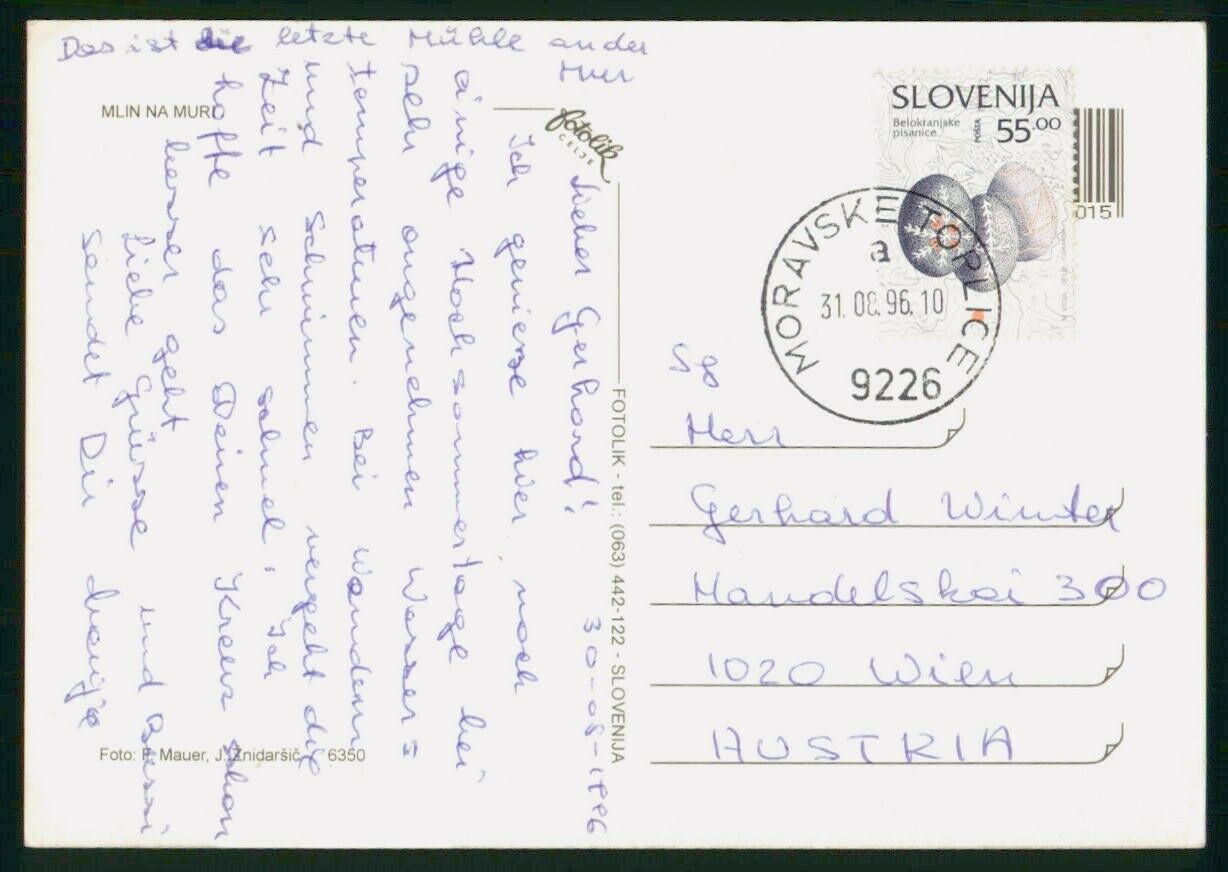 Das ist die letzte Mühle an der
Mur
MLIN NA MURI
fotolik
CELJE
30-08-1996
Lieber Gerhard!
Ich geniesse hier noch
einige Hochsommertage bei
sehr angenehmen Wasser=
temperaturen. Bei Wandern
und Schwimmen vergeht die
Zeit sehr schnel. Ich
hoffe das Deinen Kreuz schon
besser geht
Liebe Grüsse und Bussi
sendet Dir
Foto: F. Mauer, J. Žnidaršič 6350
FOTOLIK - tel.: (063) 442-122 - SLOVENIJA
SLOVENIJA
Belokranjske
pisanice
POŠTA
55.00
015
MORAVSKE TOPLICE
a
31.08.96.10
9226
Herr
Gerhard Winter
Handelskai 300
1020 Wien
AUSTRIA